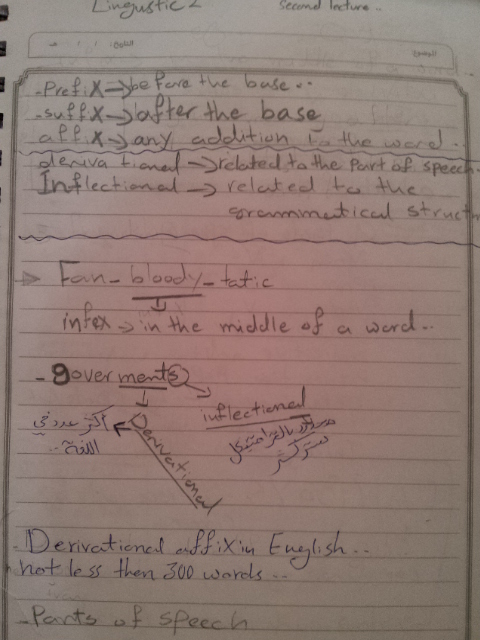 Lingustic 2 second lecture..
- Prefix → before the base...
- suffix → after the base
affix → any addition to the word..
derivational → related to the part of speech
Inflectional → related to the
grammatical struct
Fan-bloody-tatic
infex → in the middle of a word...
- goverments
inflectional
Derivational
أكثر عدد في
اللغة..
بالقراماتيكل
ستركتشر
- Derivational affix in English...
not less then 300 words...
- Parts of speech